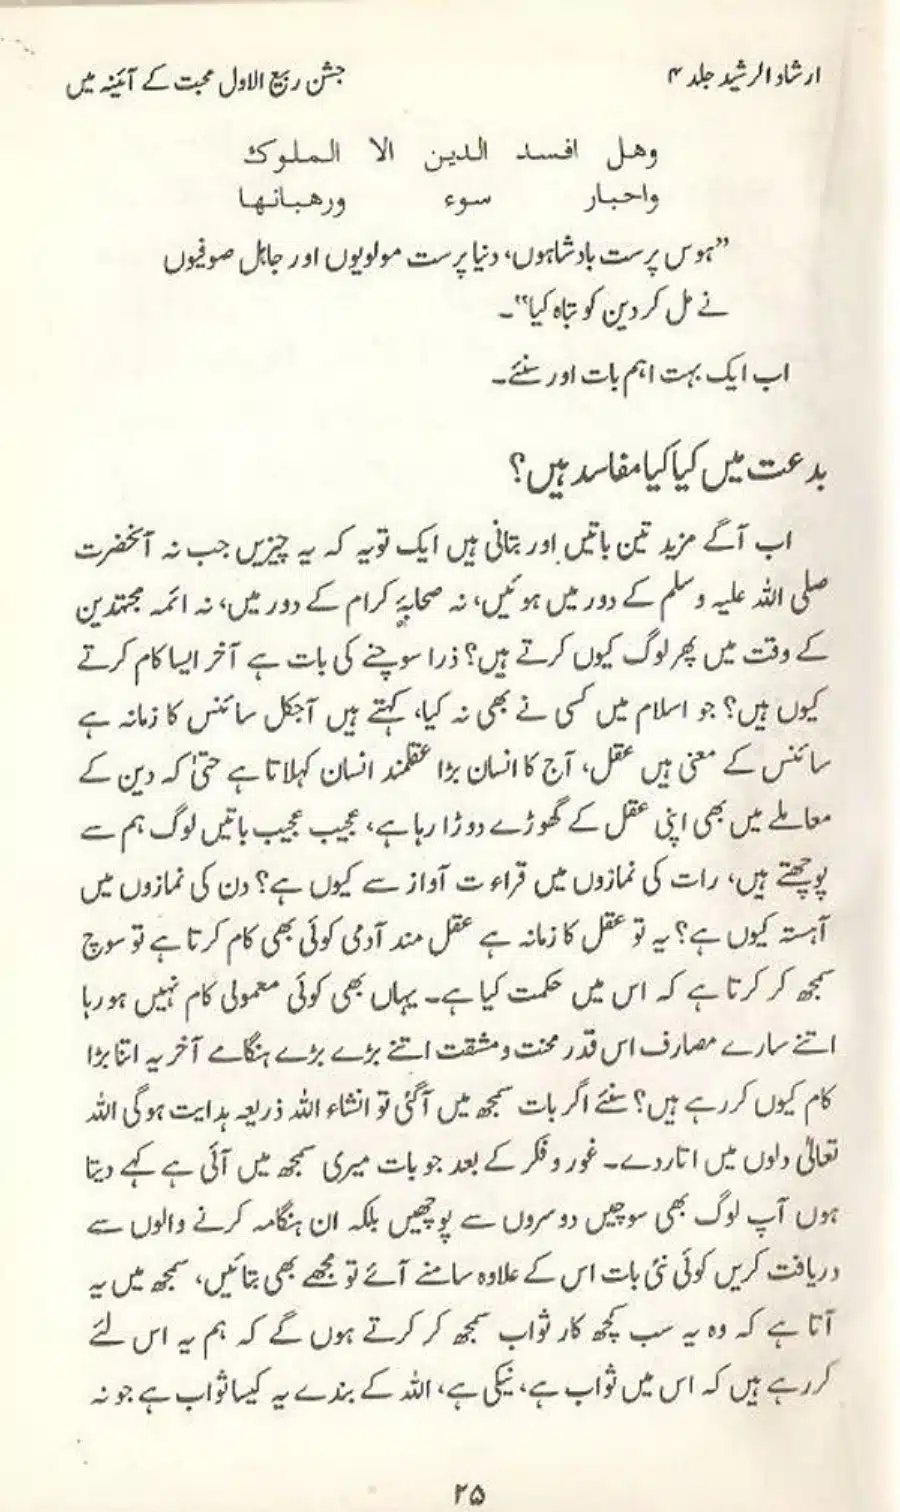 ارشاد الرشید جلد ۴
جشن ربیع الاول محبت کے آئینہ میں
وهل افسد الدين الا الملوك
واحبار سوء ورهبانها
”ہوس پرست بادشاہوں، دنیا پرست مولویوں اور جاہل صوفیوں
نے مل کر دین کو تباہ کیا“۔
اب ایک بہت اہم بات اور سنئے۔
بدعت میں کیا کیا مفاسد ہیں؟
اب آگے مزید تین باتیں اور بتانی ہیں ایک تو یہ کہ یہ چیزیں جب نہ آنحضرت
صلی اللہ علیہ وسلم کے دور میں ہوئیں، نہ صحابۂ کرام کے دور میں، نہ ائمہ مجتہدین
کے وقت میں پھر لوگ کیوں کرتے ہیں؟ ذرا سوچنے کی بات ہے آخر ایسا کام کرتے
کیوں ہیں؟ جو اسلام میں کسی نے بھی نہ کیا، کہتے ہیں آجکل سائنس کا زمانہ ہے
سائنس کے معنی ہیں عقل، آج کا انسان بڑا عقلمند انسان کہلاتا ہے حتیٰ کہ دین کے
معاملے میں بھی اپنی عقل کے گھوڑے دوڑا رہا ہے، عجیب عجیب باتیں لوگ ہم سے
پوچھتے ہیں، رات کی نمازوں میں قراءت آواز سے کیوں ہے؟ دن کی نمازوں میں
آہستہ کیوں ہے؟ یہ تو عقل کا زمانہ ہے عقل مند آدمی کوئی بھی کام کرتا ہے تو سوچ
سمجھ کر کرتا ہے کہ اس میں حکمت کیا ہے۔ یہاں بھی کوئی معمولی کام نہیں ہو رہا
اتنے سارے مصارف اس قدر محنت و مشقت اتنے بڑے بڑے ہنگامے آخر یہ اتنا بڑا
کام کیوں کر رہے ہیں؟ سنئے اگر بات سمجھ میں آگئی تو انشاء اللہ ذریعہ ہدایت ہوگی اللہ
تعالیٰ دلوں میں اتار دے۔ غور و فکر کے بعد جو بات میری سمجھ میں آئی ہے کہے دیتا
ہوں آپ لوگ بھی سوچیں دوسروں سے پوچھیں بلکہ ان ہنگامہ کرنے والوں سے
دریافت کریں کوئی نئی بات اس کے علاوہ سامنے آئے تو مجھے بھی بتائیں، سمجھ میں یہ
آتا ہے کہ وہ یہ سب کچھ کار ثواب سمجھ کر کرتے ہوں گے کہ ہم یہ اس لئے
کر رہے ہیں کہ اس میں ثواب ہے، نیکی ہے، اللہ کے بندے یہ کیسا ثواب ہے جو نہ
۲۵